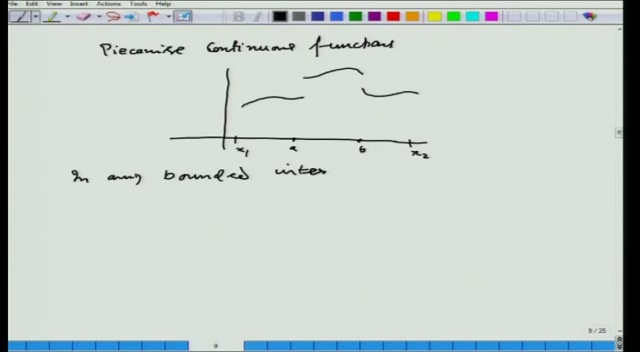 File Edit View Insert Actions Tools Help
Piecewise Continuous functions
x1 a b x2
In any bounded inter
9 / 25
9